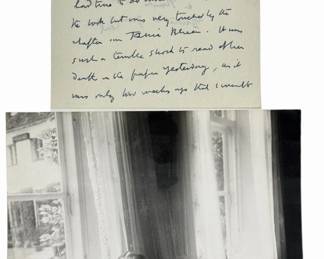 had time to do
the book but was very touched by the
chapter on It was
such a terrible shock to read of her
death in the paper yesterday, as it
was only two weeks ago that I